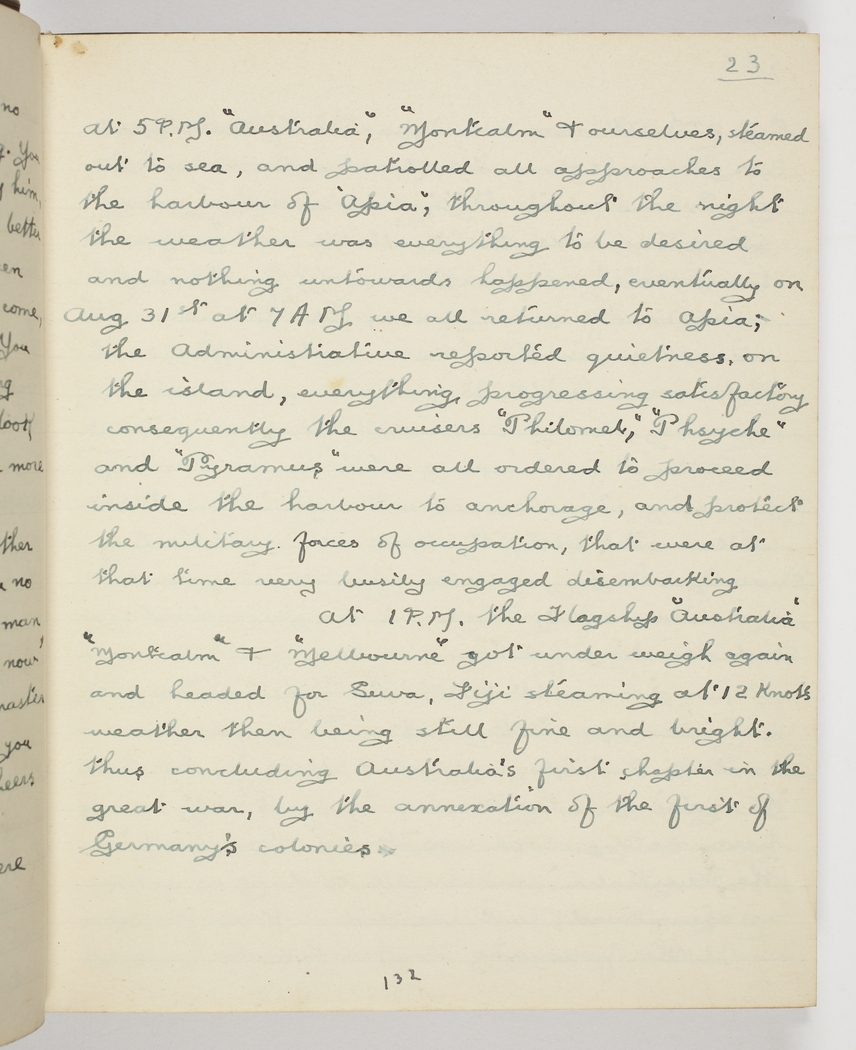 23
at 5 P.M. "Australia", "Montcalm" & ourselves, steamed
out to sea, and patrolled all approaches to
the harbour of "Apia", throughout the night
the weather was everything to be desired
and nothing untowards happened, eventually on
Aug 31st at 7 A M we all returned to Apia;-
the Administrative reported quietness, on
the island, everything, progressing satisfactory
consequently the cruisers "Philomel," "Phsyche"
and "Pyramus" were all ordered to proceed
inside the harbour to anchorage, and protect
the military. forces of occupation, that were at
that time very busily engaged disembarking
At 1 P.M. the Flagship "Australia"
"Montcalm" & "Melbourne" got under weigh again
and headed for Suva, Fiji steaming at 12 Knots
weather then being still fine and bright.
thus concluding Australia's first chapter in the
great war, by the annexation of the first of
Germany's colonies.
132
no
You
him,
better
en
come,
You
more
ther
no
man
now
you
heers
ere